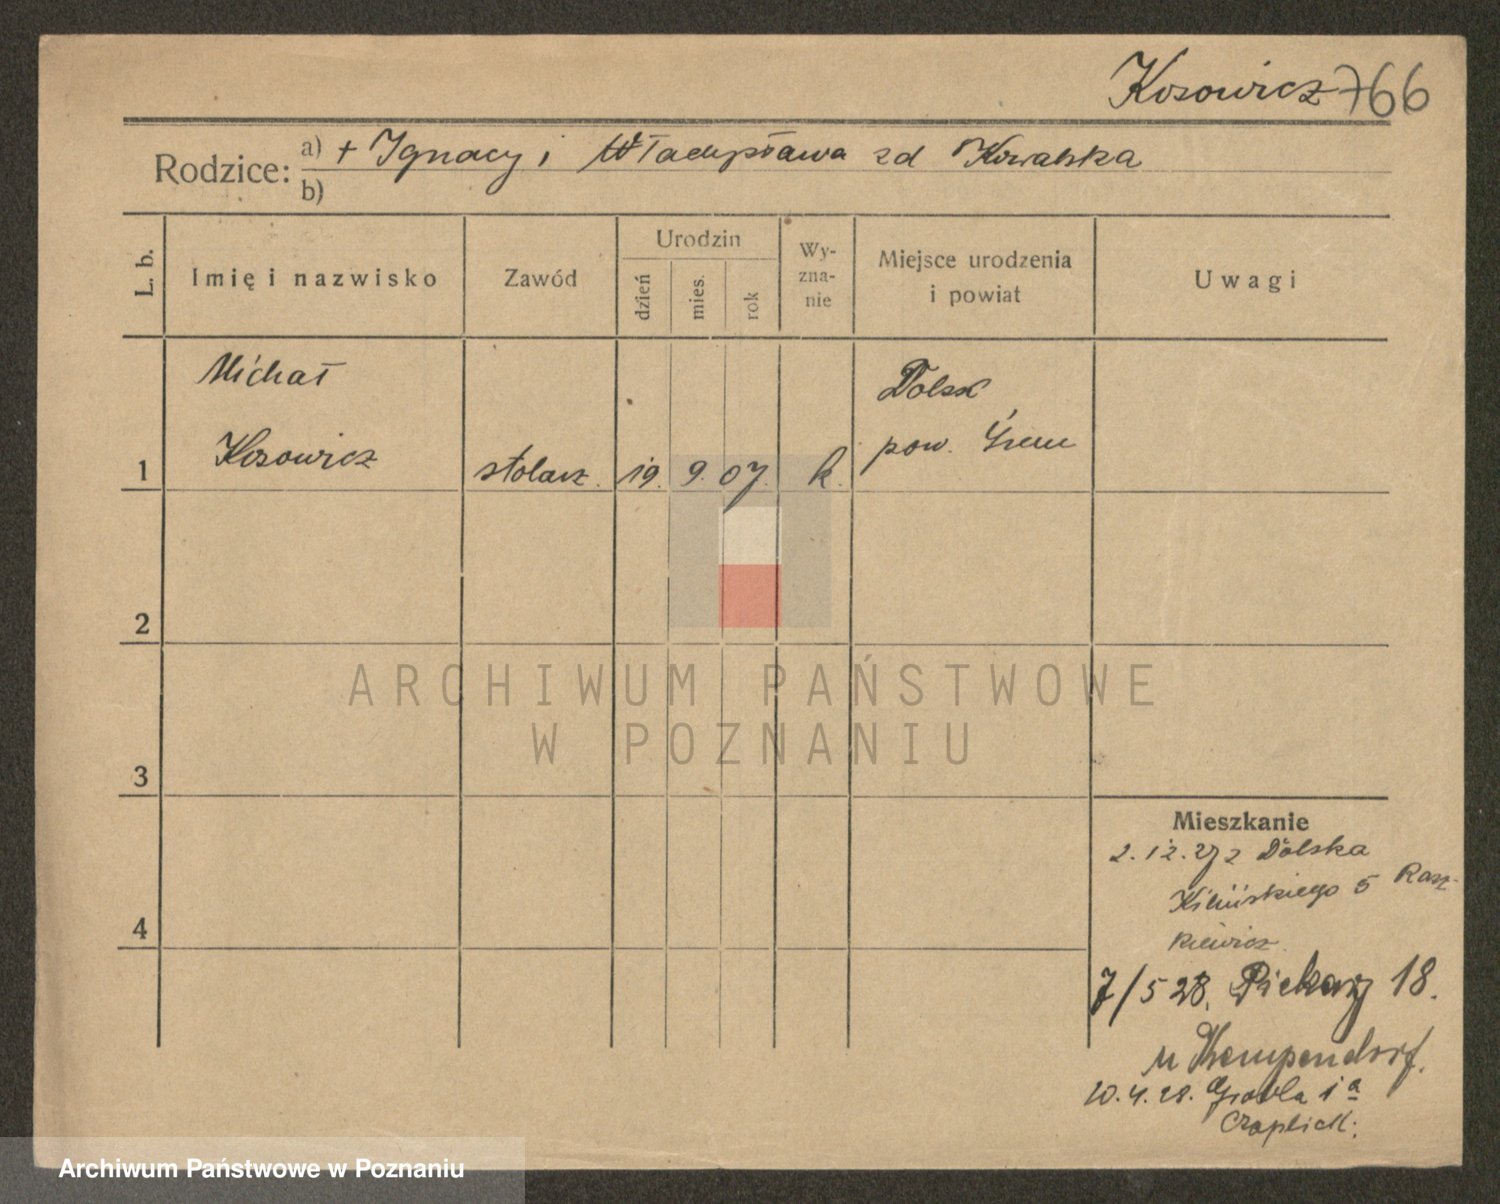 Kosowicz 766
Rodzice: a) + Ignacy i Władysława zd Kowalska
b)
L. b.
Imię i nazwisko
Zawód
Urodzin
dzień
mies.
rok
Wy-
zna-
nie
Miejsce urodzenia
i powiat
Uwagi
Michał
Dolsk
1 Kosowicz stolarz. 19. 9. 07. k. pow. Śrem
2
ARCHIWUM PAŃSTWOWE
W POZNANIU
3
Mieszkanie
2.12.27 z Dolska
Kilińskiego 5 Rasz-
kiewicz
4
7/5 28. Piekary 18.
u Kempendorf.
10.4.28. Grobla 1a
Czaplick.
Archiwum Państwowe w Poznaniu